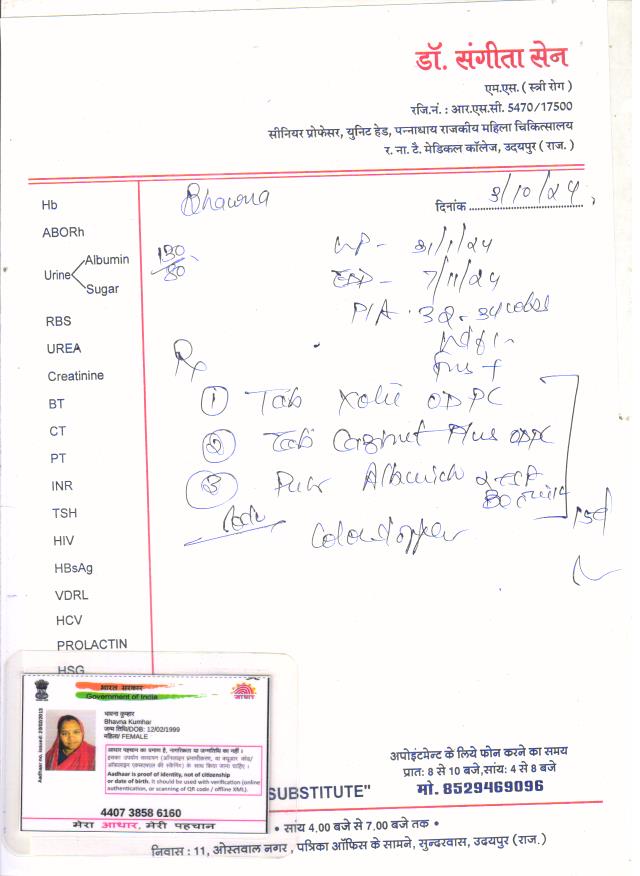 डॉ. संगीता सेन
एम.एस. ( स्त्री रोग )
रजि.नं. : आर.एस.सी. 5470/17500
सीनियर प्रोफेसर, युनिट हेड, पन्नाधाय राजकीय महिला चिकित्सालय
र. ना. टै. मेडिकल कॉलेज, उदयपुर ( राज. )
Bhawna
दिनांक 3/10/24
Hb
ABORh
Urine Albumin Sugar
130/80
31/1/24
EDD - 7/11/24
P/A
RBS
UREA
Creatinine
BT
CT
PT
INR
TSH
HIV
HBsAg
VDRL
HCV
PROLACTIN
HSG
Rx
① Tab OD PC
② Tab Plus OD PC
③
15d
भारत सरकार
Government of India
आधार
Aadhaar no. issued: 29/02/2013
भावना कुम्हार
Bhavna Kumhar
जन्म तिथि/DOB: 12/02/1999
महिला/ FEMALE
आधार पहचान का प्रमाण है, नागरिकता या जन्मतिथि का नहीं।
Aadhaar is proof of identity, not of citizenship
or date of birth. It should be used with verification (online
authentication, or scanning of QR code / offline XML).
4407 3858 6160
मेरा आधार, मेरी पहचान
SUBSTITUTE"
अपोइंटमेन्ट के लिये फोन करने का समय
प्रातः 8 से 10 बजे,सांयः 4 से 8 बजे
मो. 8529469096
• सांय 4.00 बजे से 7.00 बजे तक •
निवास : 11, ओस्तवाल नगर , पत्रिका ऑफिस के सामने, सुन्दरवास, उदयपुर (राज.)